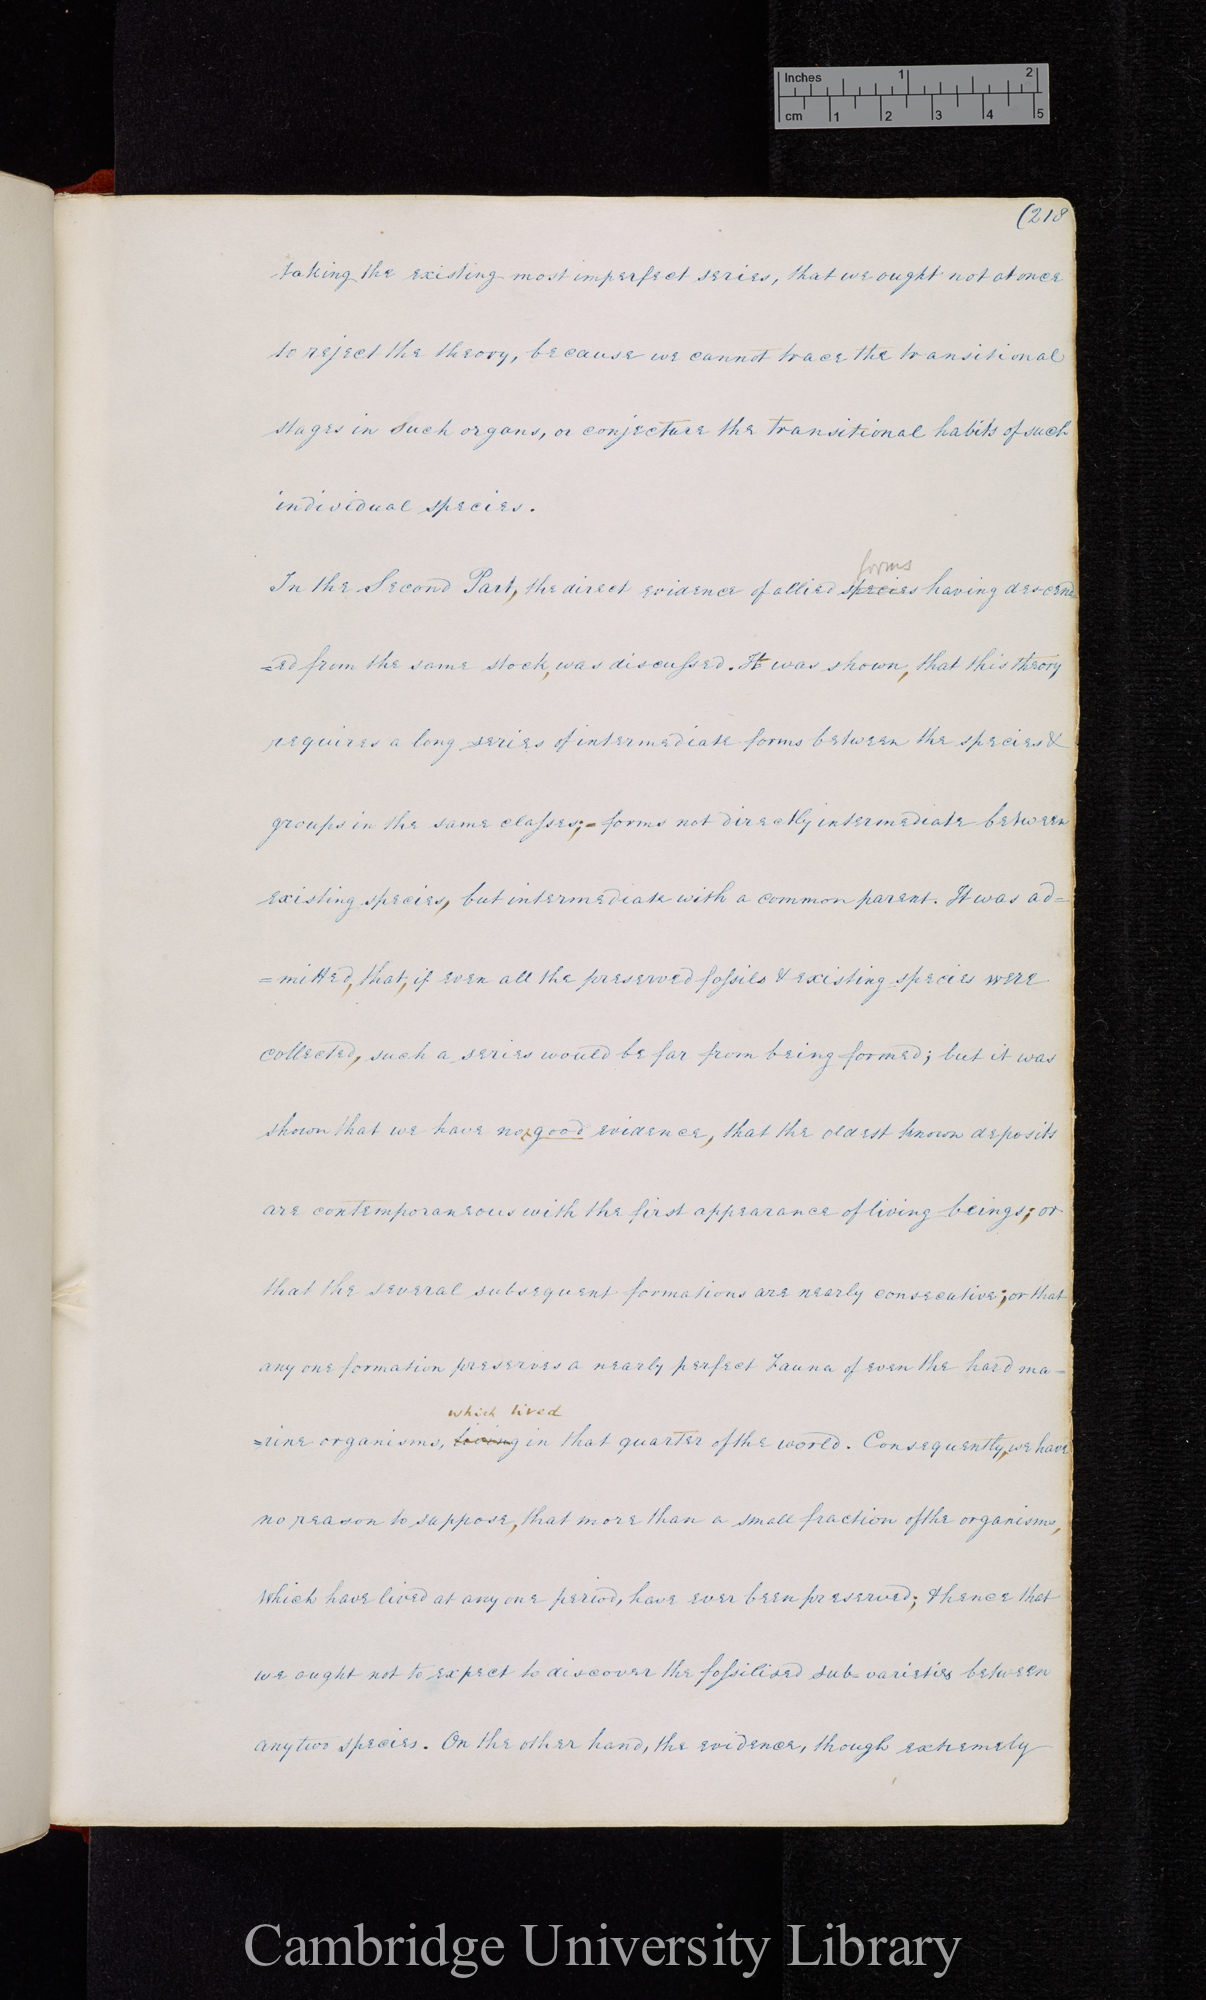 Inches 1 2
cm 1 2 3 4 5
(218
taking the existing most imperfect series, that we ought not at once
to reject the theory, because we cannot trace the transitional
stages in such organs, or conjecture the transitional habits of such
individual species.
forms
In the Second Part, the direct evidence of allied species having descend
=ed from the same stock, was discussed. It was shown, that this theory
requires a long series of intermediate forms between the species &
groups in the same classes;– forms not directly intermediate between
existing species, but intermediate with a common parent. It was ad=
=mitted, that, if even all the preserved fossils & existing species were
collected, such a series would be far from being formed; but it was
shown that we have no good evidence, that the oldest known deposits
are contemporaneous with the first appearance of living beings; or
that the several subsequent formations are nearly consecutive; or that
any one formation preserves a nearly perfect Fauna of even the hard ma=
which lived
=rine organisms, living in that quarter of the world. Consequently, we have
no reason to suppose, that more than a small fraction of the organisms,
which have lived at any one period, have ever been preserved; & hence that
we ought not to expect to discover the fossilised sub=varieties between
any two species. On the other hand, the evidence, though extremely
Cambridge University Library